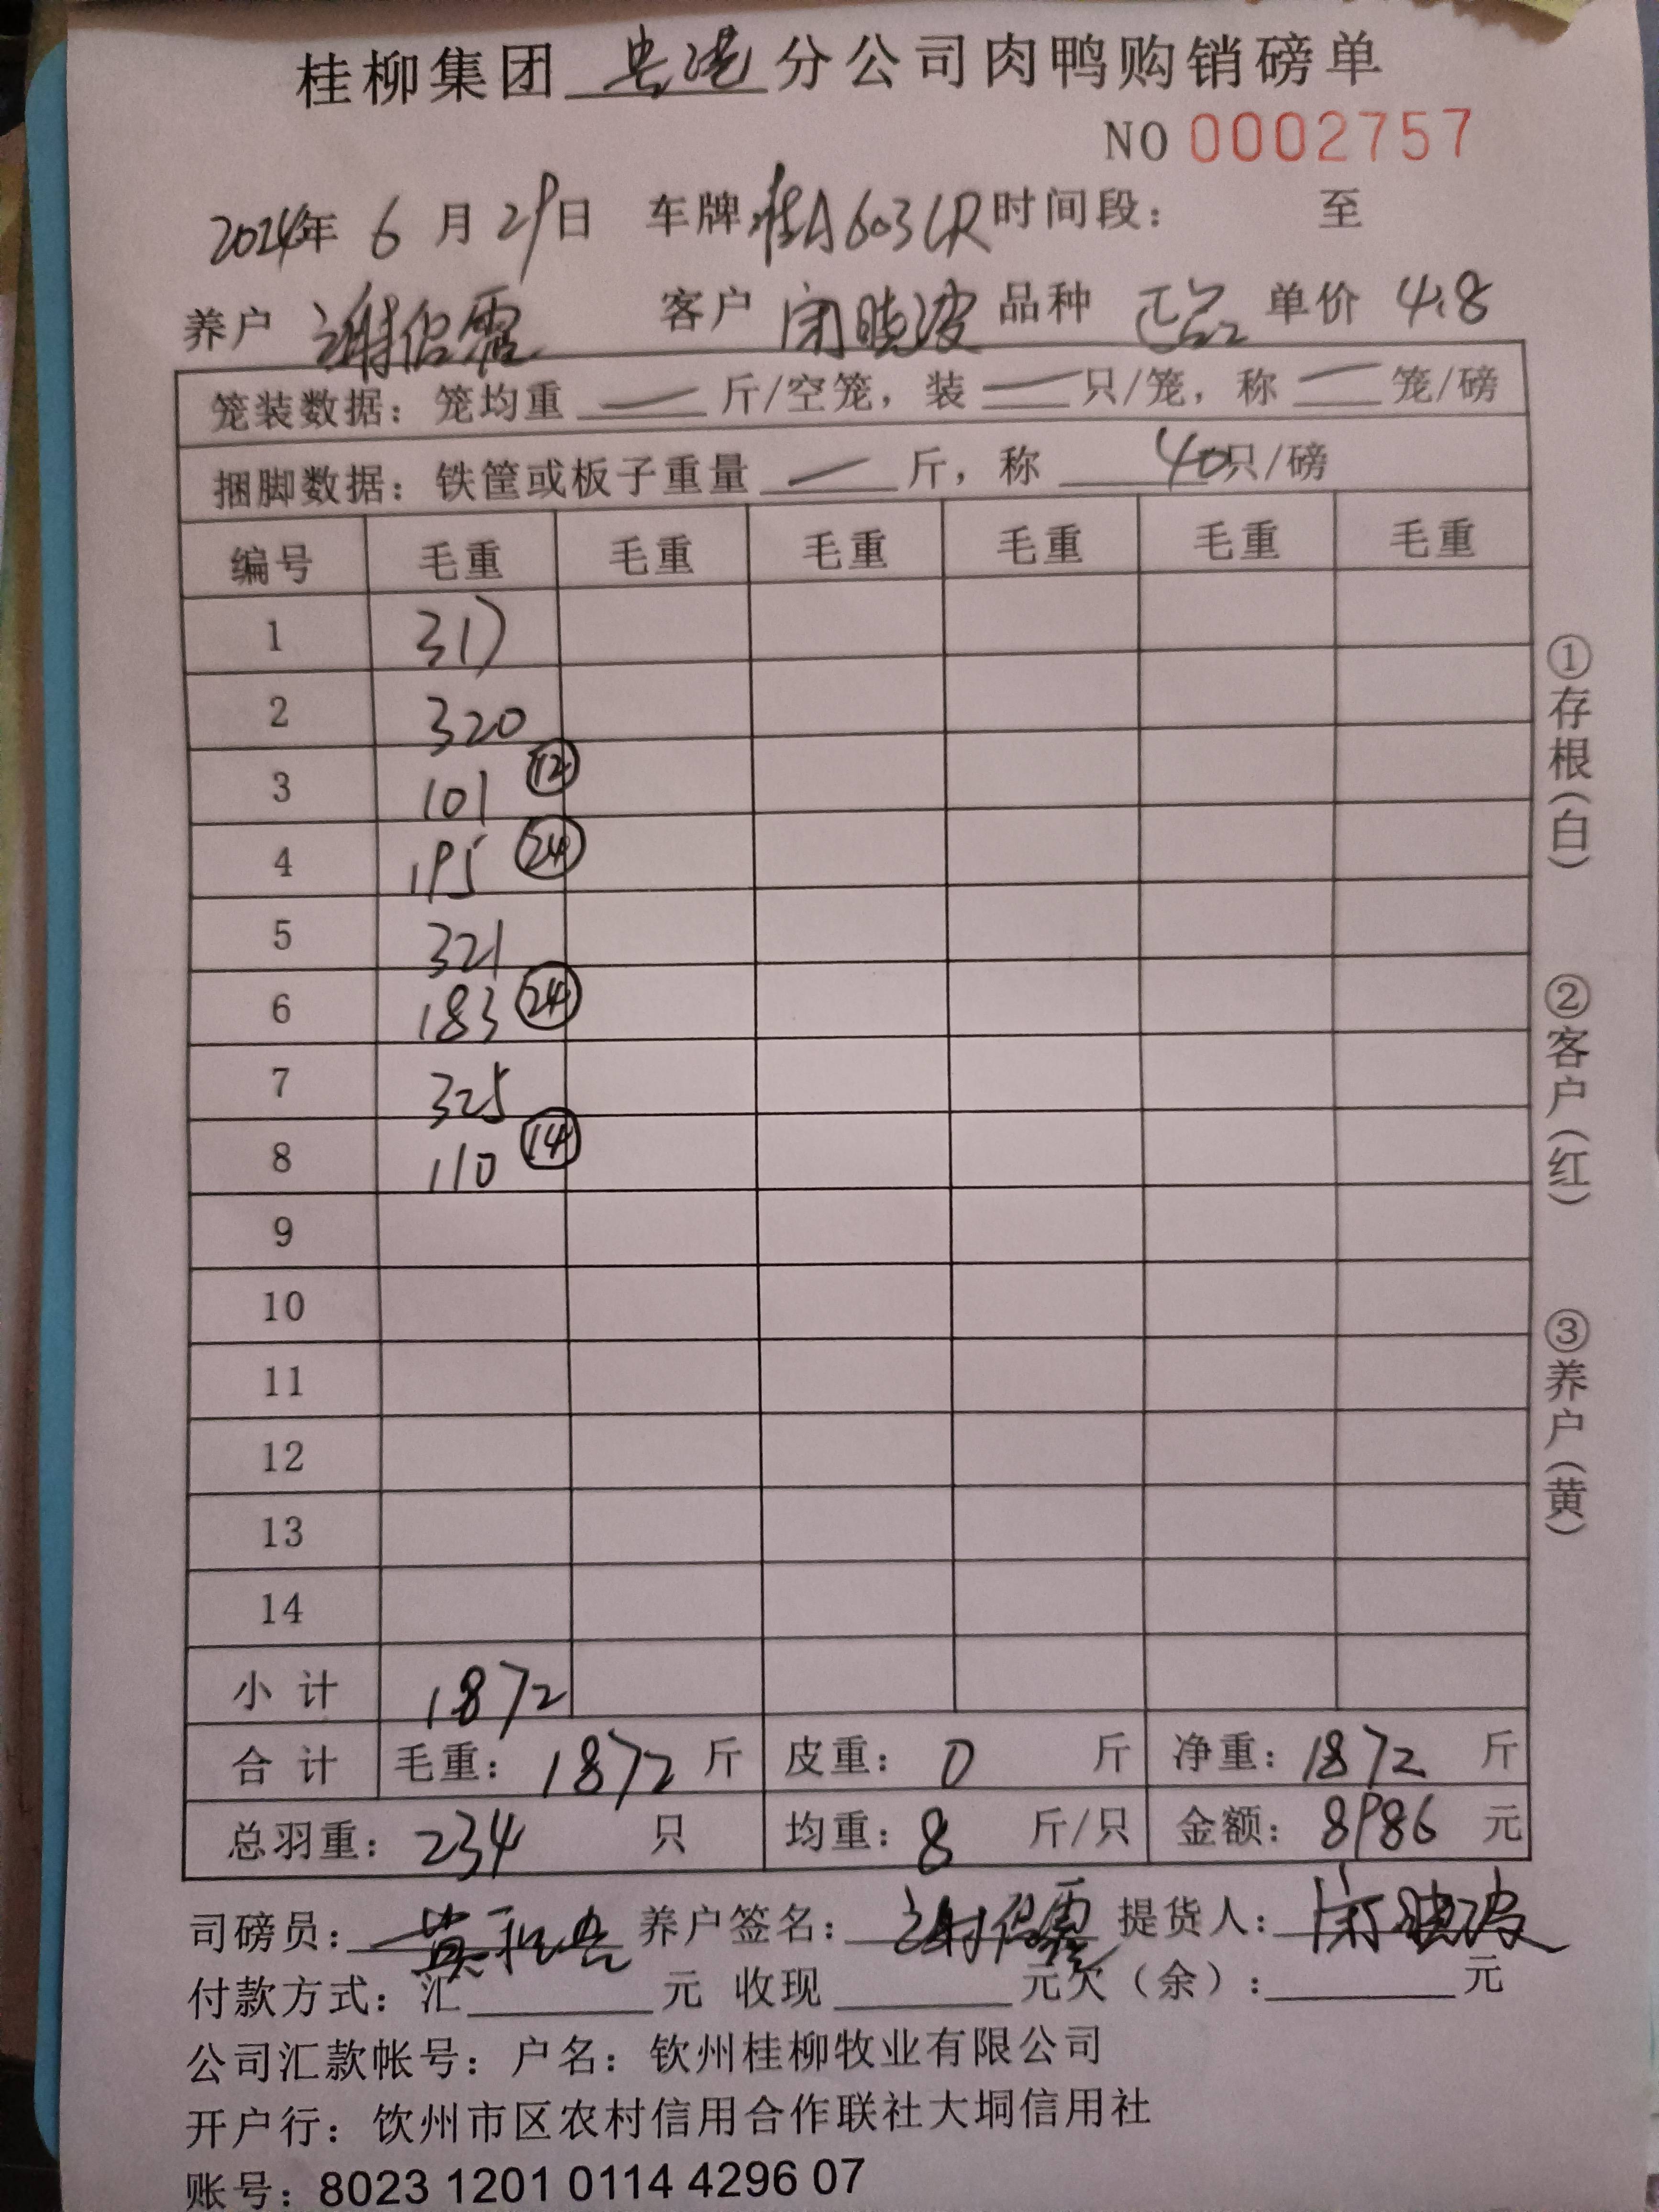 桂柳集团 贵港 分公司肉鸭购销磅单
NO 0002757
2024年 6 月 29日 车牌 桂A603LR 时间段： 至
养户 谢侣霞 客户 闭晓波 品种 正品 单价 4.8
笼装数据：笼均重 一 斤/空笼，装 一 只/笼，称 一 笼/磅
捆脚数据：铁筐或板子重量 一 斤，称 40只/磅
编号 毛重 毛重 毛重 毛重 毛重 毛重
1 317
2 320
3 101 ⑫
4 195 ㉔
5 321
6 183 ㉔
7 325
8 110 ⑭
9
10
11
12
13
14
小计 1872
合计 毛重：1872 斤 皮重：0 斤 净重：1872 斤
总羽重：234 只 均重：8 斤/只 金额：8986 元
司磅员： 养户签名：谢侣霞 提货人：闭晓波
付款方式：汇 元 收现 元欠（余）： 元
公司汇款帐号：户名：钦州桂柳牧业有限公司
开户行：饮州市区农村信用合作联社大垌信用社
账号：8023 1201 0114 4296 07
①存根（白）
②客户（红）
③养户（黄）